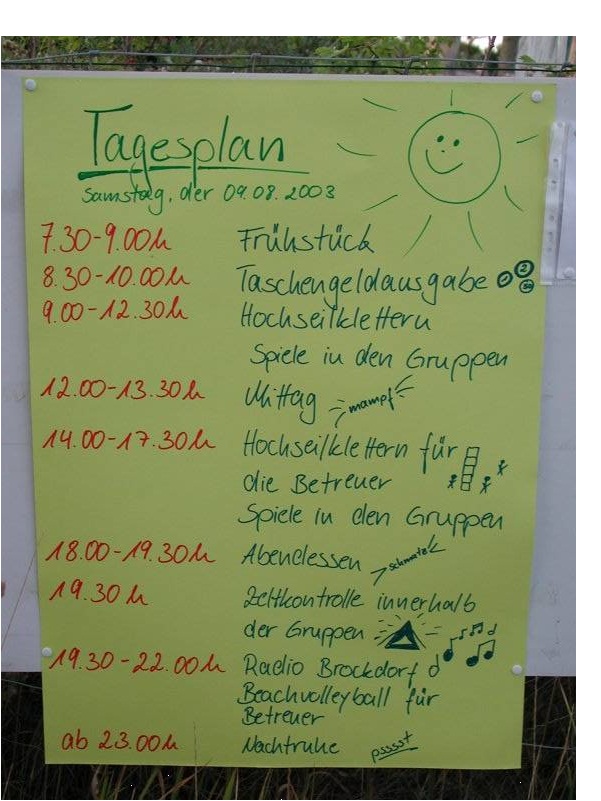 Tagesplan
Samstag, der 09.08.2003
7.30-9.00h Frühstück
8.30-10.00h Taschengeldausgabe
9.00-12.30h Hochseilklettern
Spiele in den Gruppen
12.00-13.30h Mittag mampf
14.00-17.30h Hochseilklettern für
die Betreuer
Spiele in den Gruppen
18.00-19.30h Abendessen schmatz
19.30h Zeltkontrolle innerhalb
der Gruppen
19.30-22.00h Radio Brockdorf
Beachvolleyball für
Betreuer
ab 23.00h Nachtruhe psssst